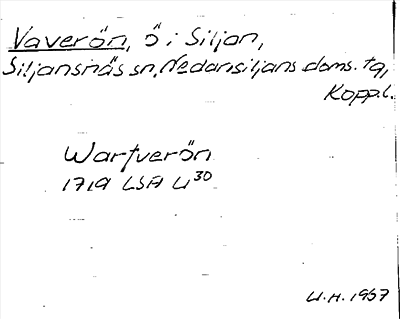 Vaverön, ö i Siljan,
Siljansnäs sn, Nedansiljans doms. tg,
Kopp.l.
Warfverön
1719 LSA U30
U.H. 1957